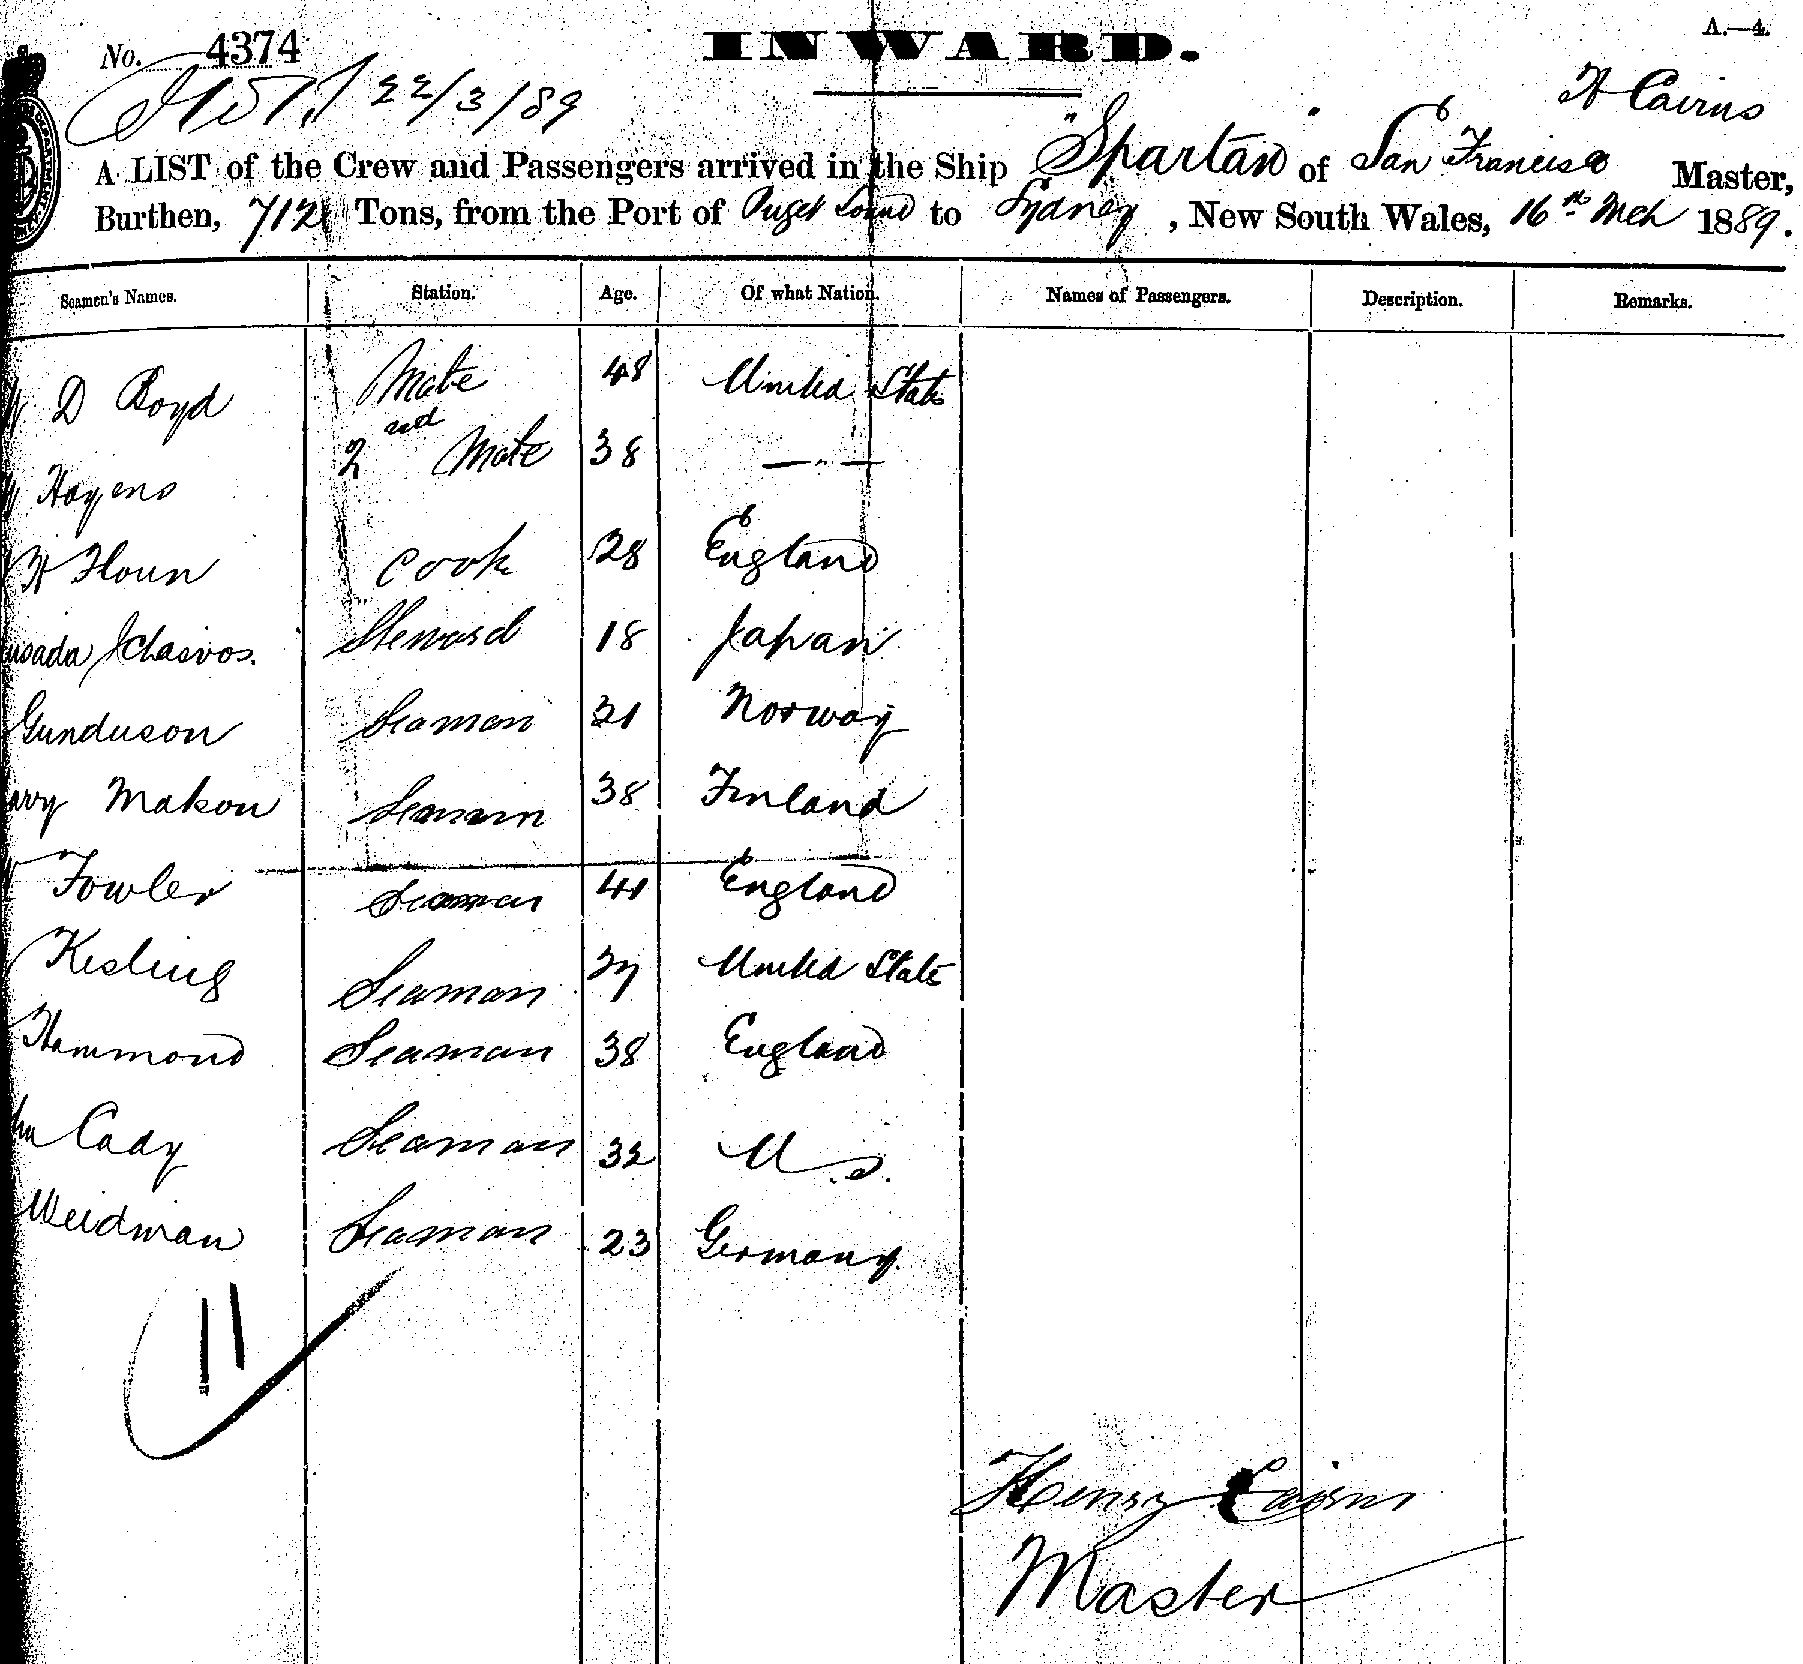 A.—4.
No. 4374
INWARD.
22/3/89
H Cairns
A LIST of the Crew and Passengers arrived in the Ship "Spartan" of San Francisco Master,
Burthen, 712 Tons, from the Port of Puget Sound to Sydney, New South Wales, 16th Mch 1889.
Seamen's Names. Station. Age. Of what Nation. Names of Passengers. Description. Remarks.
D Boyd Mate 48 United State
Hayens 2nd Mate 38 — " —
H Houn Cook 28 England
Steward 18 Japan
Gunduson Seaman 31 Norway
Makon Seaman 38 Finland
Fowler Seaman 41 England
Kesling Seaman 37 United State
Hammond Seaman 38 England
Cady Seaman 32 U.S.
Weidman Seaman 23 Germany.
11
Henry Cairns
Master